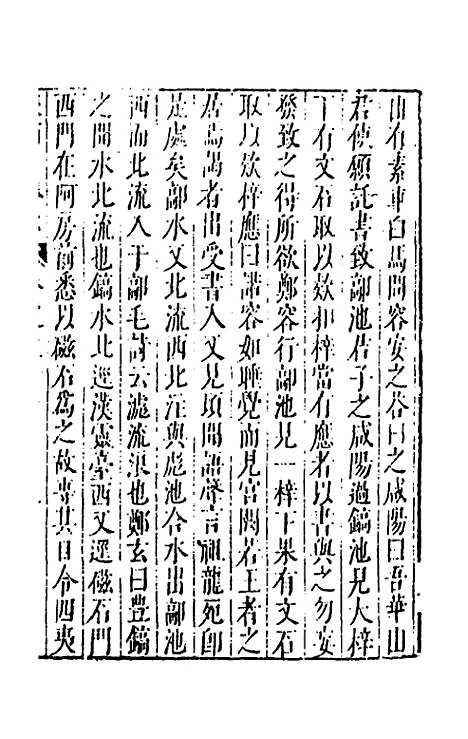 山有素車白馬問容安之荅曰之咸陽曰吾華山
君使願託書致鄗池君子之咸陽過鎬池見大梓
下有文石取以欵扣梓當有應者以書與之勿妄
發致之得所欲鄭容行鄗池見一梓下果有文石
取以欵梓應曰諾容如睡覺而見宫闕若王者之
居焉謁者出受書入又見頃聞語聲言祖龍死即
是處矣鄗水又北流西北注與彪池合水出鄗池
西而北流入于鄗毛詩云滮流浪也鄭玄曰豊鎬
之間水北流也鎬水北逕漢靈臺西又逕磁石門
西門在阿房前悉以磁石爲之故専其目令四夷